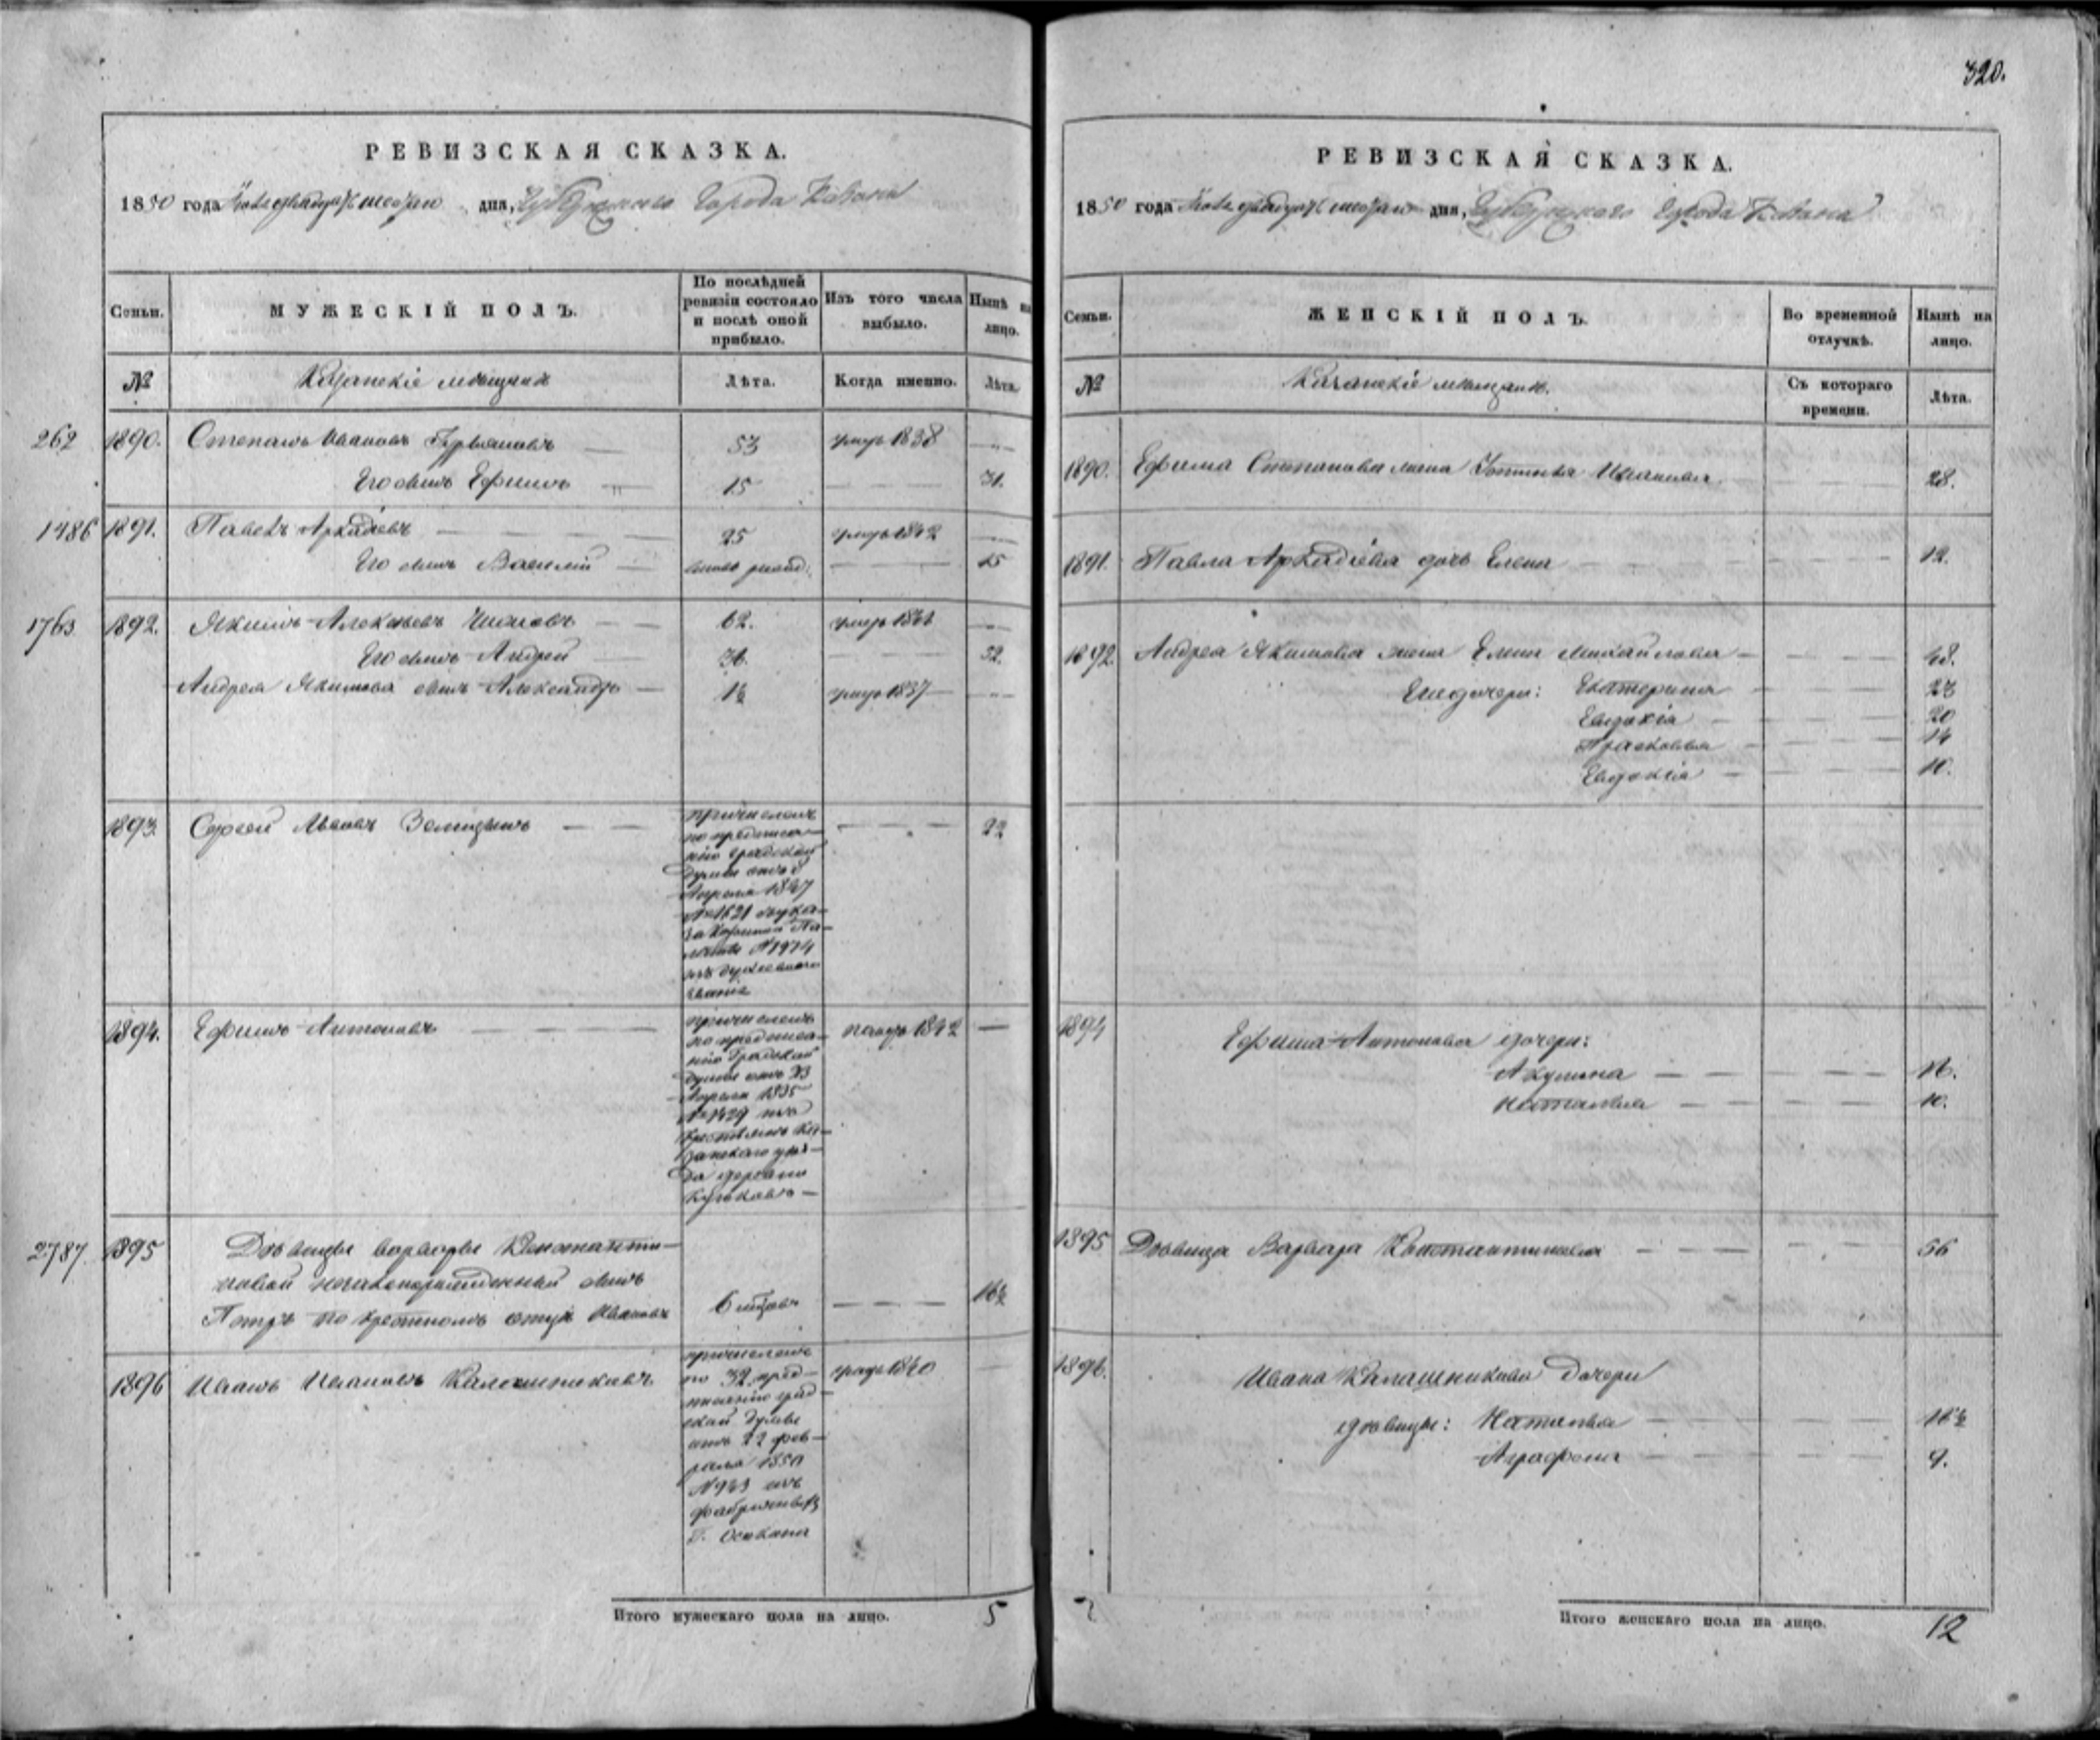 320.
РЕВИЗСКАЯ СКАЗКА.
1850 года дня, Губернскаго Города Казани
Семьи.
МУЖЕСКІЙ ПОЛЪ.
По послѣдней ревизіи состояло и послѣ оной прибыло.
Изъ того числа выбыло.
Нынѣ на лицо.
№
Казанскіе мѣщане
Лѣта.
Когда именно.
Лѣта.
262 1890. Степанъ Ивановъ 53 умеръ 1838
Его сынъ Ефимъ 15 31.
1486 1891. Павелъ Аркадіевъ 25 умеръ 1842
Его сынъ Василій 15
1763 1892. Якимъ Алексѣевъ 62. умеръ
Его сынъ Андрей 52.
Андрея Якимова сынъ Александръ умеръ 1837
1893. Сергей 22
причисленъ
по предписа-
нію Градской
Думы отъ 8
Апреля 1847
№ 1621 и ука-
за Казенной Па-
латы № 1974
изъ духовнаго
званія
1894. Ефимъ Антоновъ 1842
причисленъ
по предписа-
нію Градской
Думы отъ 23
Апреля 1835
№ 1429 изъ
крестьянъ Ка-
занскаго уѣз-
да деревни
2787. 1895 Дѣвицы Варвары Константи-
новой незаконорожденный сынъ
Петръ по крестномъ отцѣ Ивановъ 6 16½
1896 Иванъ Ивановъ Калашниковъ умеръ 1840
причисленъ
по пред-
писанію Град-
ской Думы
отъ 22 фев-
раля
изъ
Г. Осокина
Итого мужескаго пола на лицо. 5
РЕВИЗСКАЯ СКАЗКА.
1850 года дня, Губернскаго Города Казани
Семьи.
ЖЕНСКІЙ ПОЛЪ.
Во временной отлучкѣ.
Нынѣ на лицо.
№
Казанскіе мѣщане.
Съ котораго времени.
Лѣта.
1890. Ефима Степанова жена Иванова 28.
1891. Павла Аркадіева дочь Елена 12.
1892 Андрея Якимова жена Елена Михайлова 48.
Ихъ дочери: Екатерина 23
Евдокія 20
Прасковья 14
Евдокія 10.
1894 Ефима Антонова дочери:
Акулина 16.
Наталья 10.
1895 Дѣвица Варвара Константинова 56
1896. Ивана Калашникова дочери
дѣвицы: Наталья
Аграфена 9.
Итого женскаго пола на лицо. 12